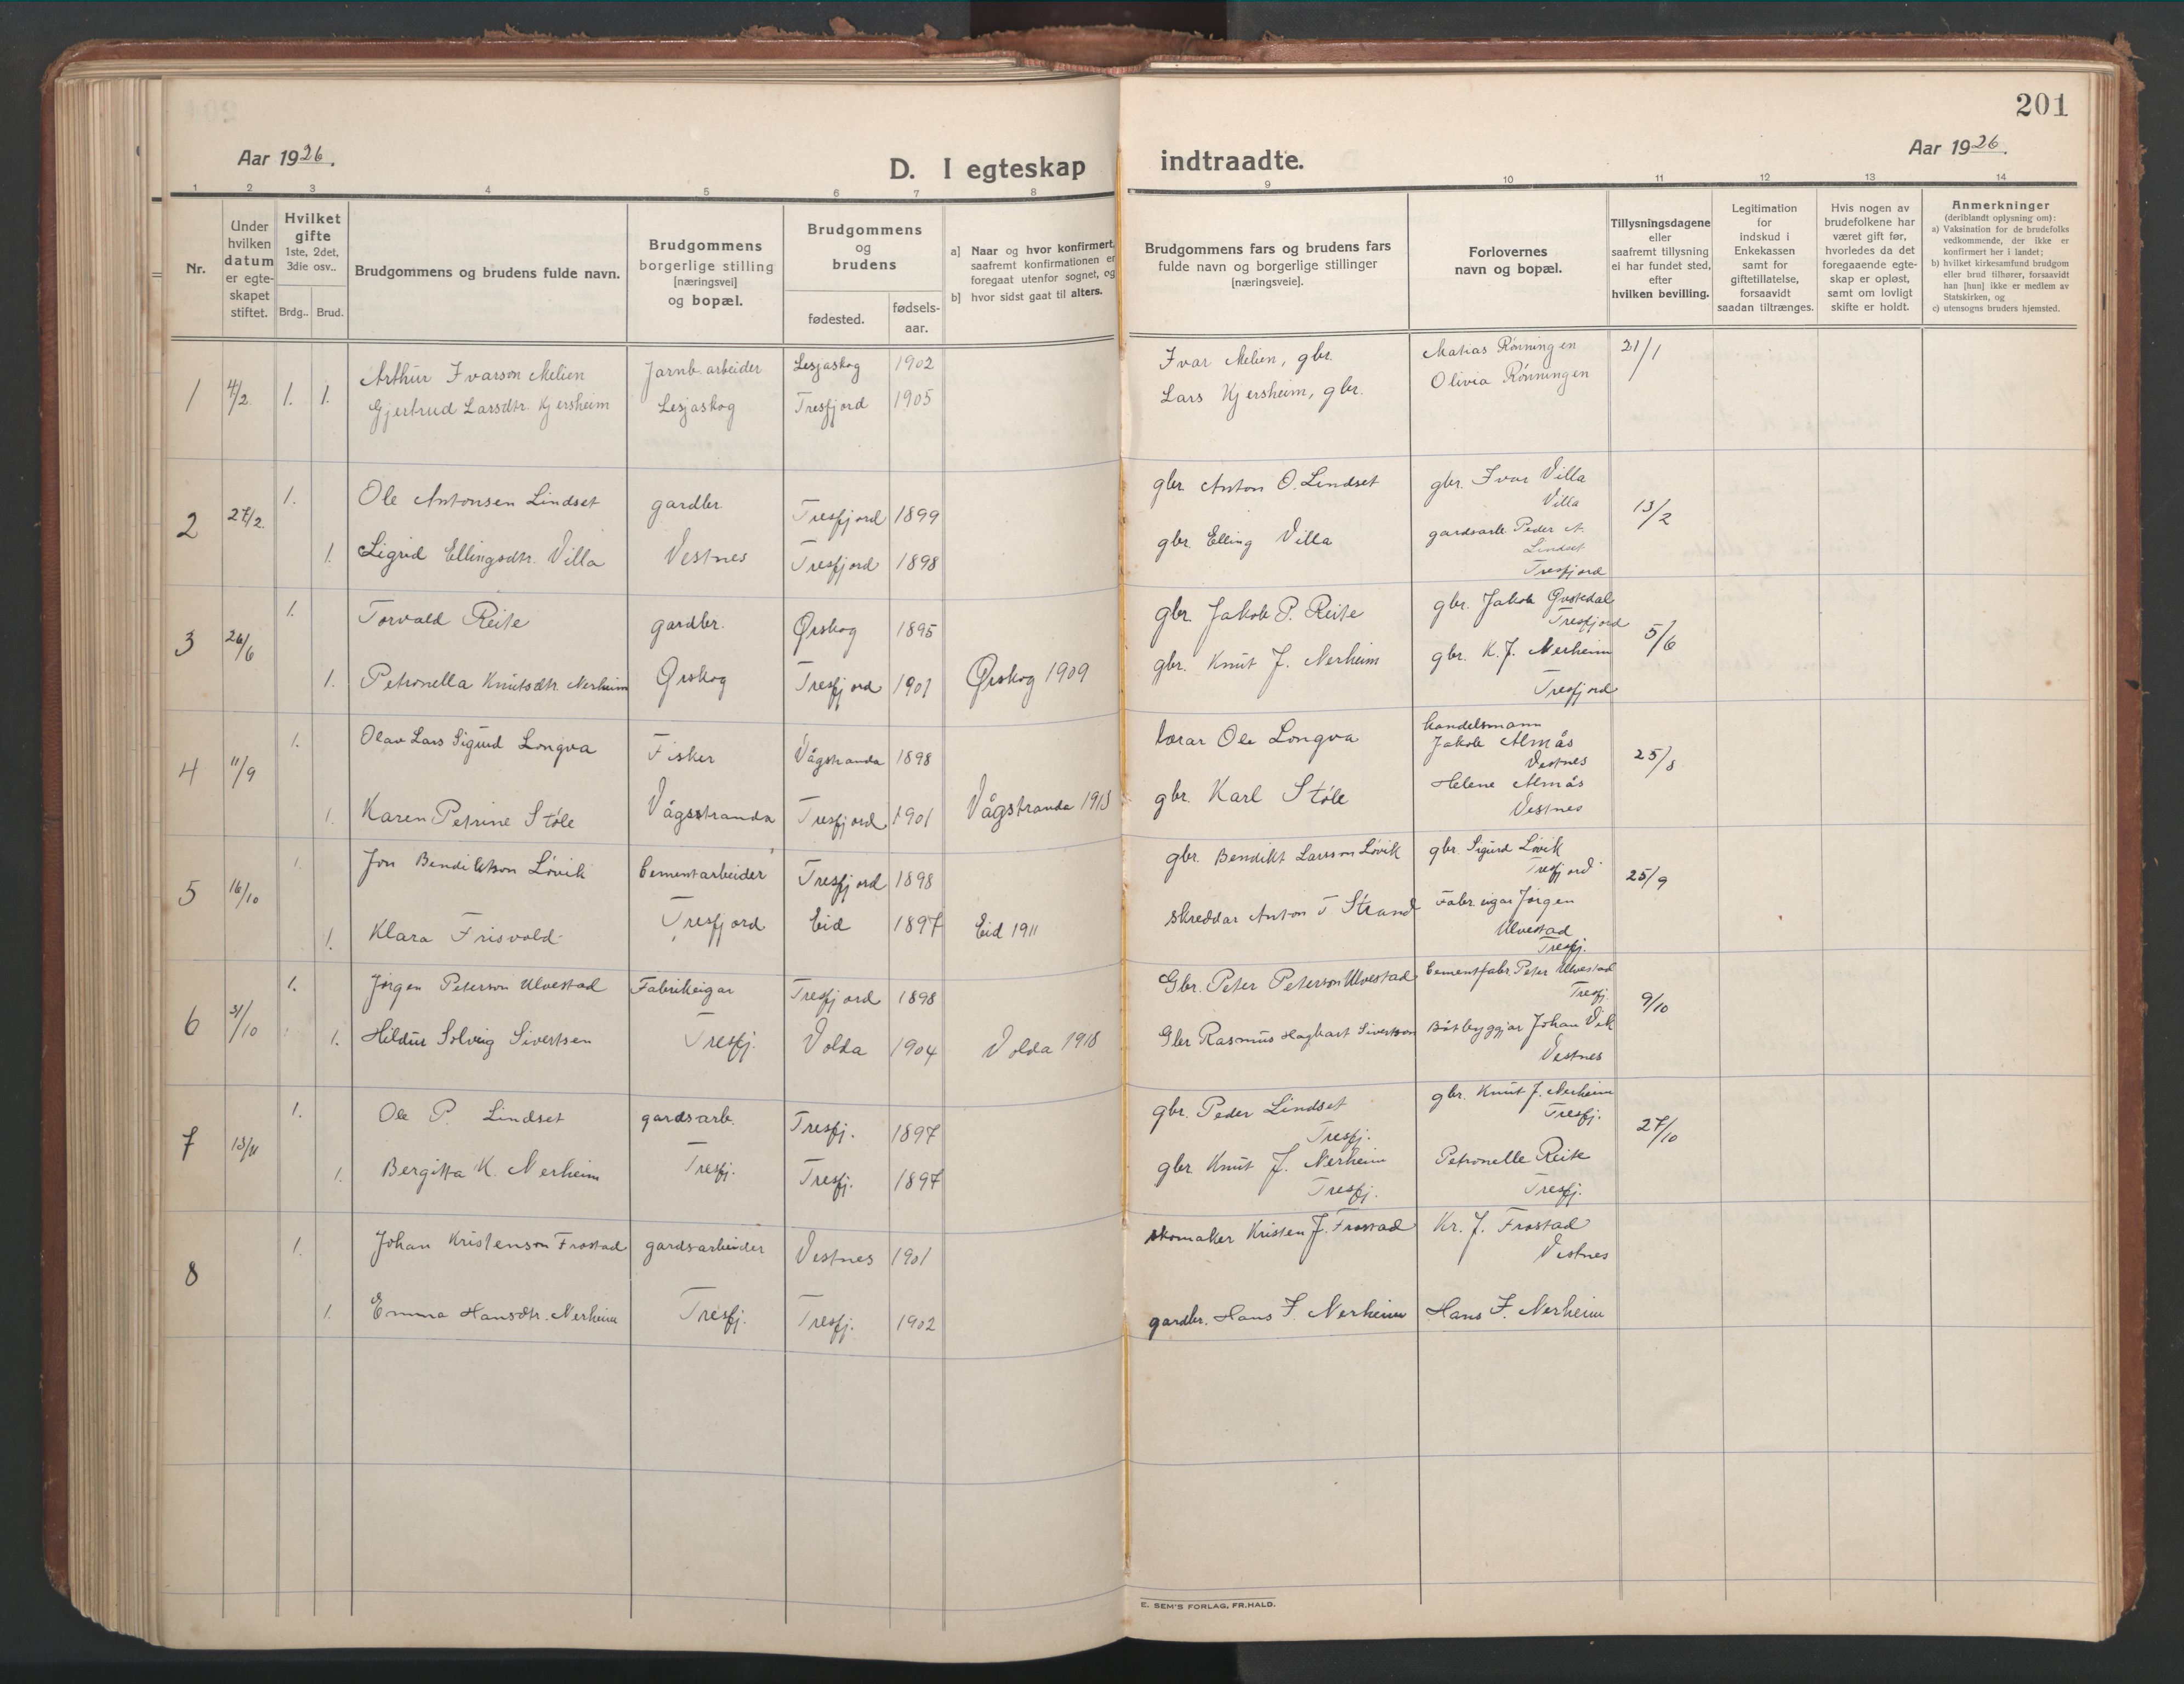 201
Aar 1926.
D. I egteskap indtraadte.
Aar 1926.
1 2 3 4 5 6 7 8 9 10 11 12 13 14
Nr.
Under hvilken datum er egte-skapet stiftet.
Hvilket gifte 1ste, 2det, 3die osv..
Brdg.. Brud.
Brudgommens og brudens fulde navn.
Brudgommens borgerlige stilling [næringsvei] og bopæl.
Brudgommens og brudens
fødested.
fødsels-aar.
a] Naar og hvor konfirmert, saafremt konfirmationen er foregaat utenfor sognet, og
b] hvor sidst gaat til alters.
Brudgommens fars og brudens fars fulde navn og borgerlige stillinger [næringsveie].
Forlovernes navn og bopæl.
Tillysningsdagene eller saafremt tillysning ei har fundet sted, efter hvilken bevilling.
Legitimation for indskud i Enkekassen samt for giftetillatelse, forsaavidt saadan tiltrænges.
Hvis nogen av brudefolkene har været gift før, hvorledes da det foregaaende egte-skap er opløst, samt om lovligt skifte er holdt.
Anmerkninger (deriblandt oplysning om):
a) Vaksination for de brudefolks vedkommende, der ikke er konfirmert her i landet;
b) hvilket kirkesamfund brudgom eller brud tilhører, forsaavidt han [hun] ikke er medlem av Statskirken, og
c) utensogns bruders hjemsted.
1 4/2 1. 1. Arthur Ivarson Melien Jarnb. arbeider Lesjaskog 1902 Ivar Melien, gbr. Matias Rönningen 21/1
Gjertrud Larsdtr. Kjersheim Lesjaskog Tresfjord 1905 Lars Kjersheim, gbr. Olivia Rönningen
2 27/2 1. Ole Antonsen Lindset gardbr Tresfjord 1899 gbr Anton O. Lindset gbr. Ivar Villa 13/2
Villa
1. Sigrid Ellingsdtr. Villa Vestnes Tresfjord 1898 gbr. Elling Villa gardsarb. Peder A.
Lindset
Tresfjord
3 26/6 1. Torvald Reite gardbr. Ørskog 1895 gbr Jakob P. Reite gbr. Jakob
Tresfjord 5/6
1. Petronella Knutsdtr. Nerheim Ørskog Tresfjord 1901 Ørskog 1909 gbr. Knut J. Nerheim gbr. K. J. Nerheim
Tresfjord
4 11/9 1. Olav Lars Sigurd Longva Fisker Vågstranda 1898 lærar Ole Longva handelsmann
Jakob Almås 25/8
Vestnes
1. Karen Petrine Støle Vågsstranda Tresfjord 1901 Vågstranda gbr. Karl Støle Helene Almås
Vestnes
5 16/10 1. Jon Bendiktson Løvik Cementarbeider Tresfjord 1898 gbr. Bendikt Larsson Løvik gbr. Sigurd Løvik 25/9
Tresfjord
1. Klara Frisvold Tresfjord Eid 1897 Eid 1911 skreddar Anton T Strand Fabr eigar Jørgen
Ulvestad
Tresfj.
6 31/10 1. Jørgen Peterson Ulvestad Fabrikeigar Tresfjord 1898 Gbr. Peter Peterson Ulvestad Cementfabr. Peter Ulvestad
Tresfj. 9/10
1. Hildur Solveig Sivertsen Tresfj. Volda 1904 Volda 1918 Gbr Rasmus Hagbart Sivertson Båtbyggjar Johan Vik
Vestnes
7 13/11 1. Ole P. Lindset gardsarb. Tresfj. 1897 gbr. Peder Lindset gbr. Knut J. Nerheim 27/10
Tresfj. Tresfj.
1. Bergitta K. Nerheim Tresfj. Tresfj. 1897 gbr Knut J. Nerheim Petronelle Reite
Tresfj. Tresfj.
8 1. Johan Kristenson Frostad gardsarbeider Vestnes 1901 skomaker Kristen J. Frostad Kr. J. Frostad
Vestnes
1. Emma Hansdtr. Nerheim Tresfj. Tresfj. 1902 gardbr. Hans J. Nerheim Hans J. Nerheim
E. SEM'S FORLAG, FR.HALD.